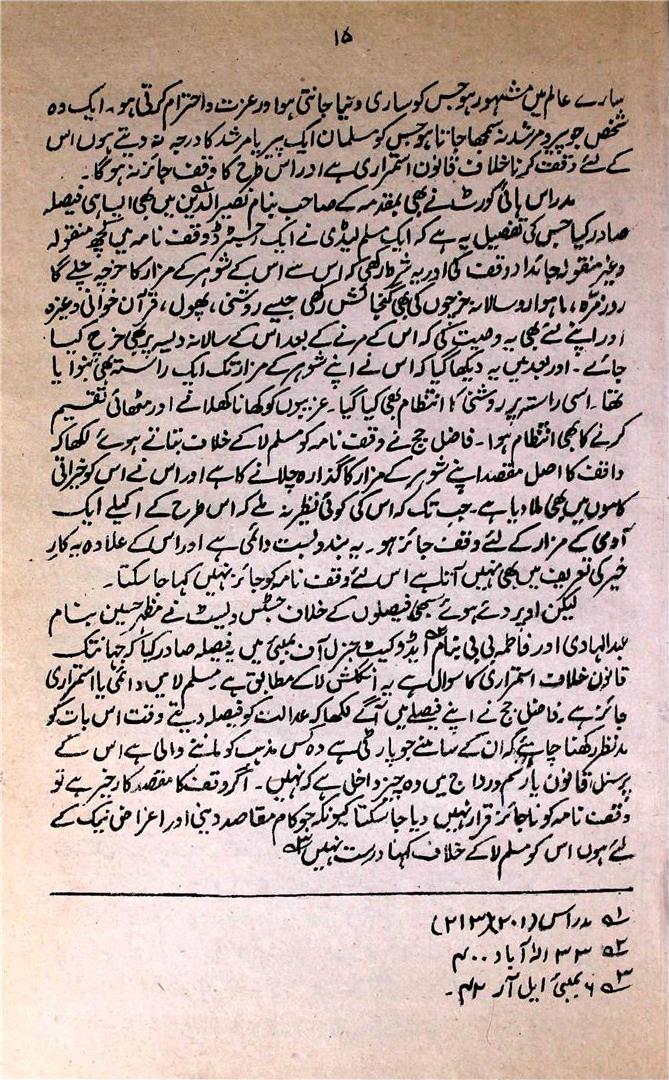 ۱۵
سارے عالم میں مشہور ہو جس کو ساری دنیا جانتی ہو اور عزت و احترام کرتی ہو۔ ایک وہ
شخص جو پیر و مرشد نہ سمجھا جاتا ہو جس کو مسلمان ایک پیر یا مرشد کا درجہ نہ دیتے ہوں اس
کے لئے وقف کرنا خلاف قانون استمراری ہے اور اس طرح کا وقف جائز نہ ہوگا۔
مدراس ہائی کورٹ نے بھی بمقدمہ کے صاحب بنام نصیر الدین میں بھی ایسا ہی فیصلہ
صادر کیا جس کی تفصیل یہ ہے کہ ایک مسلم لیڈی نے ایک رجسٹرڈ وقف نامہ میں کچھ منقولہ
و غیر منقولہ جائداد وقف کی اور یہ شرط رکھی کہ اس سے اس کے شوہر کے مزار کا خرچہ چلے گا
روز مرّہ، ماہوار و سالانہ خرچوں کی بھی گنجائش رکھی جیسے روشنی، پھول، قرآن خوانی وغیرہ
اور اپنے لئے بھی یہ وصیت کی کہ اس کے مرنے کے بعد اس کے سالانہ دیسہ پر بھی خرچ کیا
جائے۔ اور بعد میں یہ دیکھا گیا کہ اس نے اپنے شوہر کے مزار تک ایک راستہ بھی بنوایا
تھا۔ اسی راستہ پر روشنی کا انتظام بھی کیا گیا۔ غریبوں کو کھانا کھلانے اور مٹھائی تقسیم
کرنے کا بھی انتظام ہوا۔ فاضل جج نے وقف نامہ کو مسلم لا کے خلاف بتاتے ہوئے لکھا کہ
واقف کا اصل مقصد اپنے شوہر کے مزار کا گذارہ چلانے کا ہے اور اس نے اس کو خیراتی
کاموں میں بھی ملا دیا ہے۔ جب تک کہ اس کی کوئی نظیر نہ ملے کہ اس طرح کے اکیلے ایک
آدمی کے مزار کے لئے وقف جائز ہو۔ یہ بندوبست دائمی ہے اور اس کے علاوہ یہ کار
خیر کی تعریف میں بھی نہیں آتا ہے اس لئے وقف نامہ کو جائز نہیں کہا جا سکتا۔
لیکن اوپر دئے ہوئے سبھی فیصلوں کے خلاف جسٹس ویسٹ نے مظہر حسین بنام
عبدالہادی اور فاطمہ بی بی بنام ایڈوکیٹ جنرل آف بمبئی میں یہ فیصلہ صادر کیا کہ جہانتک
قانون خلاف استمراری کا سوال ہے یہ انگلش لا کے مطابق ہے مسلم لا میں دائمی یا استمراری
جائز ہے۔ فاضل جج نے اپنے فیصلے میں آگے لکھا کہ عدالت کو فیصلہ دیتے وقت اس بات کو
مدنظر رکھنا چاہئے کہ ان کے سامنے جو پارٹی ہے وہ کس مذہب کو ماننے والی ہے اس کے
پرسنل قانون یا رسم و رواج میں وہ چیز داخل ہے کہ نہیں۔ اگر وقف کا مقصد کار خیر ہے تو
وقف نامہ کو ناجائز قرار نہیں دیا جا سکتا کیونکہ جو کام مقاصد دینی اور اغراض نیک کے
لئے ہوں اس کو مسلم لا کے خلاف کہنا درست نہیں ۳؎
۱؎ مدراس (۲۰۱) (۲۱۳)
۲؎ ۳۳ الہ آباد ۴۰۰
۳؎ ۶ بمبئی ایل آر ۴۲۔